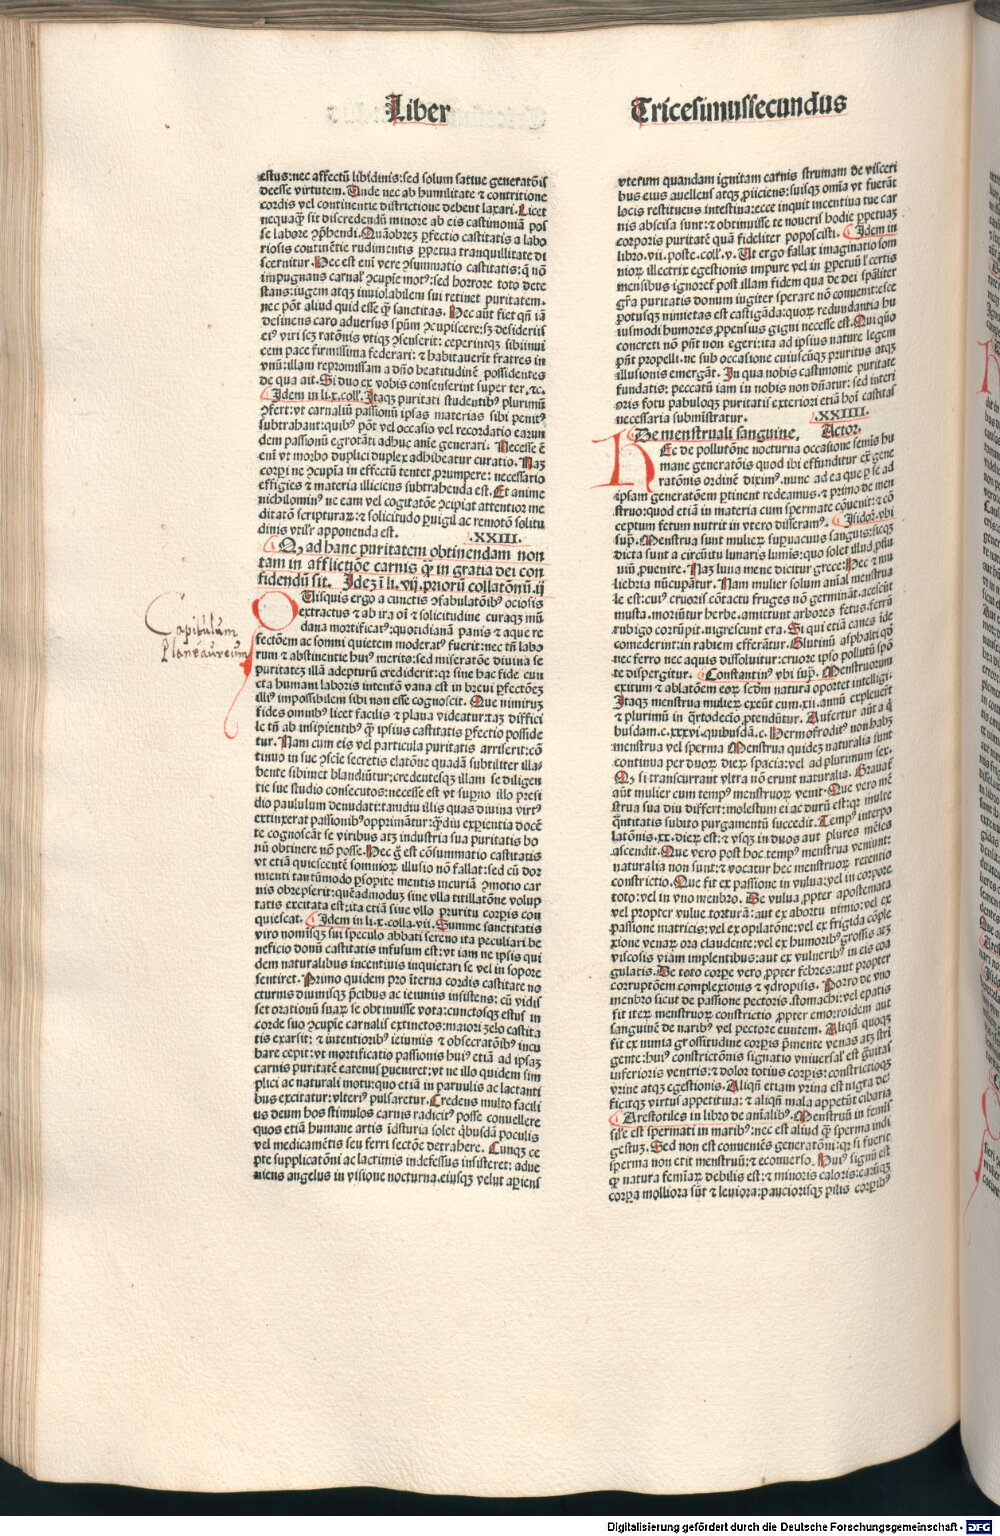 Liber
estus: nec affectū libidinis: sed solum satiue generatōis
deesse virtutem. Unde nec ab humilitate ⁊ contritione
cordis vel continentie districtione debent laxari. Licet
nequaꝙ̄ sit discredendū minore ab eis castimoniā pos
se labore ꝯphendi. Quāobreꝫ ꝑfectio castitatis a labo
riosis continētie rudimentis ꝑpetua tranquillitate di
scernitur. Hec est eni vere ꝯsummatio castitatis: q̄ nō
impugnans carnal' ꝯcupie motꝰ: sed horrore toto dete
stans: iugem atqꝫ inuiolabilem sui retinet puritatem.
nec pōt aliud quid esse q̄ꝫ sanctitas. Hec aūt fiet qn̄ iā
desinens caro aduersus spūm ꝯcupiscere: sꝫ desideriis
ei' viri scꝫ ratōnis vtiqꝫ ꝯsenserit: ceperintqꝫ sibiinui
cem pace firmissima federari: ⁊ habitauerit fratres in
vnū: illam repromissam a dn̄o beatitudinē possidentes
de qua ait. Si duo ex vobis consenserint super ter. ⁊c.
Idem in li. x. coll'. Itaqꝫ puritati studentibꝰ plurimū
ꝯfert: vt carnaliū passionū ipsas materias sibi penitꝰ
subtrahant: quibꝰ pōt vel occasio vel recordatio earun
dem passionū egrotāti adhuc anie generari. Necesse ē
eni vt morbo duplici duplex adhibeatur curatio. Naꝫ
corpi ne ꝯcupia in effectū tentet ꝓrumpere: necessario
effigies ⁊ materia illiciens subtrahenda est. Et anime
nichilominꝰ ne eam vel cogitatōe ꝯcipiat attentior me
ditatō scripturaꝝ: ⁊ solicitudo ꝑuigil ac remotō solitu
dinis vtilr apponenda est. .XXIII.
Q, ad hanc puritatem obtinendam non
tam in afflictiōe carnis q̄ꝫ in gratia dei con
fidendū sit. Ideꝫ ī li. vij. priorū collatōnū. ij
Capitulum
Planeaureum
QUisquis ergo a cunctis ꝯfabulatōibꝰ ociosis
extractus ⁊ ab ira oī ⁊ solicitudine curaqꝫ mū
dana mortificatꝰ: quotidianā panis ⁊ aque re
fectōem ac somni quietem moderatꝰ fuerit: nec tn̄ labo
rum ⁊ abstinentie huiꝰ merito: sed miseratōe diuina se
puritateꝫ illā adepturū crediderit: qꝛ sine hac fide cun
cta humani laboris intentō vana est in breui ꝑfectōeꝫ
illiꝰ impossibilem sibi non esse cognoscit. Que nimiruꝫ
fides omnibꝰ licet facilis ⁊ plana videatur: taꝫ diffici
le tn̄ ab insipientibꝰ q̄ꝫ ipsius castitatis ꝑfectio posside
tur. Nam cum eis vel particula puritatis arriserit: cō
tinuo in sue ꝯscie secretis elatōne quadā subtiliter illa
bente sibimet blandiūtur: credentesqꝫ illam se diligen
tie sue studio consecutos: necesse est vt supno illo presi
dio paululum denudati: tamdiu illis quas diuina virtꝰ
extinxerat passionibꝰ opprimātur: q̄diu expientia docē
te cognoscāt se viribus atqꝫ industria sua puritatis bo
nū obtinere nō posse. Hec ḡ est cōsummatio castitatis
vt etiā quiescentē somnioꝝ illusio nō fallat: sed cū dor
mienti tantūmodo ꝑ sopite mentis incuriā ꝯmotio car
nis obrepserit: queādmoduꝫ sine vlla titillatōne volup
tatis excitata est: ita etiā sine vllo pruritu corpis con
quiescat. Idem in li. x. colla. vii. Summe sanctitatis
viro nomīsqꝫ sui speculo abbati sereno ita peculiari be
neficio donū castitatis infusum est: vt iam ne ipsis qui
dem naturalibus incentiuis inquietari se vel in sopore
sentiret. Primo quidem pro īterna cordis castitate no
cturnis diurnisqꝫ p̄cibus ac ieiuniis insistens: cū vidis
set orationū suaꝝ se obtinuisse vota: cunctosqꝫ estus in
corde suo ꝯcupie carnalis extinctos: maiori ꝫelo castita
tis exarsit: ⁊ intentioribꝰ ieiuniis ⁊ obsecratōibꝰ incu
bare cepit: vt mortificatio passionis huiꝰ etiā ad ipsaꝫ
carnis puritatē eatenus ꝑueniret: vt ne illo quidem sim
plici ac naturali motu: quo etiā in paruulis ac lactanti
bus excitatur: vlteriꝰ pulsaretur. Credens multo facili
us deum hos stimulos carnis radicitꝰ posse conuellere
quos etiā humane artis īdustria solet q̄busdā poculis
vel medicamētis seu ferri sectōe detrahere. Cunqꝫ ce
pte supplicatōni ac lacrimis indefessus insisteret: adue
niens angelus in visione nocturna. eiusqꝫ velut apiens
Tricesimussecundus
vterum quandam ignitam carnis strumam de visceri
bus eius auellens atqꝫ ꝓiiciens: suisqꝫ oīa vt fuerāt
locis restituens intestina: ecce inquit incentiua tue car
nis abscisa sunt: ⁊ obtinuisse te noueris hodie ꝑpetuaꝫ
corporis puritatē quā fideliter poposcisti. Idem in
libro. vii. poste. coll'. v. Ut ergo fallax imaginatio som
nioꝝ illectrix egestionis impure vel in ꝑpetuū l' certis
mensibus ignoret' post illam fidem qua de dei spāliter
gr̄a puritatis donum iugiter sperare nō conuenit: esce
potusqꝫ nimietas est castigāda: quoꝝ redundantia hu
iusmodi humores ꝓpensius gigni necesse est. Qui quō
concreti nō pn̄t non egeri: ita ad ipsius nature legem
pn̄t propelli. ne sub occasione cuiuscūqꝫ pruritus atqꝫ
illusionis emergāt. In qua nobis castimonie puritate
fundatis: peccatū iam in nobis non dn̄atur: sed interi
oris fotu pabuloqꝫ puritatis exteriori etiā hoi castitas
necessaria subministratur. .XXIIII.
De menstruali sanguine. Actor.
HEc de pollutōne nocturna occasione semis hu
mane generatōis quod ibi effunditur ex gene
ratōnis ordinē diximꝰ. nunc ad ea que ꝑ se ad
ipsam generatōem ꝑtinent redeamus. ⁊ primo de men
struo: quod etiā in materia cum spermate cōuenit: ⁊ cō
ceptum fetum nutrit in vtero disseramꝰ. Isidoꝝ. vbi
sup. Menstrua sunt mulieꝝ supuacuus sanguis: sicqꝫ
dicta sunt a circūitu lunaris luminis: quo solet illud ꝓflu
uiū ꝓuenire. Naꝫ luna mene dicitur grece: Hec ⁊ mu
liebria nūcupātur. Nam mulier solum anial menstrua
le est: cuiꝰ cruoris cōtactu fruges nō germināt. acescūt
musta. moriūtur herbe. amittunt arbores fetus. ferrū
rubigo corrūpit. nigrescunt era. Si qui etiā canes ide
comederint: in rabiem efferātur. Glutinū asphalti qd̄
nec ferro nec aquis dissoluitur: cruore ipso pollutū spō
te dispergitur. Constantinꝰ vbi sup. Menstruorum
exitum ⁊ ablatōem eoꝝ scdm naturā oportet intelligi.
Itaqꝫ menstrua mulieꝝ exeūt cum. xii. annū expleuerit
⁊ plurimū in q̄rtodecio ꝓtendūtur. Aufertur aūt a q̄
busdam. c. xxxvi. quibusdā. c. Hermofroditꝰ non habꝫ
menstrua vel sperma Menstrua quideꝫ naturalia sunt
continua per duoꝝ dieꝝ spacia: vel ad plurimum sex.
Q, si transcurrant vltra nō erunt naturalia. Grauat'
aūt mulier cum tempꝰ menstruoꝝ venit. Que vero mē
strua sua diu differt: molestum ei ac durū est: qꝛ multe
q̄ntitatis subito purgamentū succedit. Tempꝰ interpo
latōnis. xx. dieꝝ est: ⁊ vsqꝫ in duos aut plures mēses
ascendit. Que vero post hoc tempꝰ menstrua veniunt:
naturalia non sunt: ⁊ vocatur hec menstruoꝝ retentio
constrictio. Que fit ex passione in vulua: vel in corpore
toto: vel in vno menbro. De vulua ꝓpter apostemata
vel propter vulue torturā: aut ex abortu nimio: vel ex
passione matricis: vel ex opilatōne: vel ex frigida cōple
xione venaꝝ ora claudente: vel ex humoribꝰ grossis atqꝫ
viscosis viam implentibus: aut ex vulneribꝰ in eis coa
gulatis. De toto corpe vero ꝓpter febres: aut propter
corruptōem complexionis ⁊ ydropisis. Porro de vno
menbro sicut de passione pectoris. stomachi: vel epatis
fit iteꝝ menstruoꝝ constrictio ꝓpter emoroidem aut
sanguinē de naribꝰ vel pectore euntem. Aliqn̄ quoqꝫ
fit ex nimia grossitudine corpis p̄mente venas atqꝫ stri
gente: huiꝰ constrictōnis signatio vniuersal' est gͣuitas
inferioris ventris: ⁊ dolor totius corpis: constrictioqꝫ
vrine atqꝫ egestionis. Aliqn̄ etiam vrina est nigra defi
ficitqꝫ virtus appetitiua: ⁊ aliqn̄ mala appetūt cibaria
Arestotiles in libro de anialibꝰ. Menstruū in femīs
sile est spermati in maribꝰ: nec est aliud q̄ꝫ sperma indi
gestuꝫ. Sed non est conueniēs generatōni: qꝛ si fuerit
sperma non erit menstruū: ⁊ econuerso. Huiꝰ signū est
qꝛ natura femiaꝝ debilis est: ⁊ minoris caloris: earūqꝫ
corpora molliora sūt ⁊ leuiora: pauciorisqꝫ pilis corpibꝰ
Digitalisierung gefördert durch die Deutsche Forschungsgemeinschaft - DFG